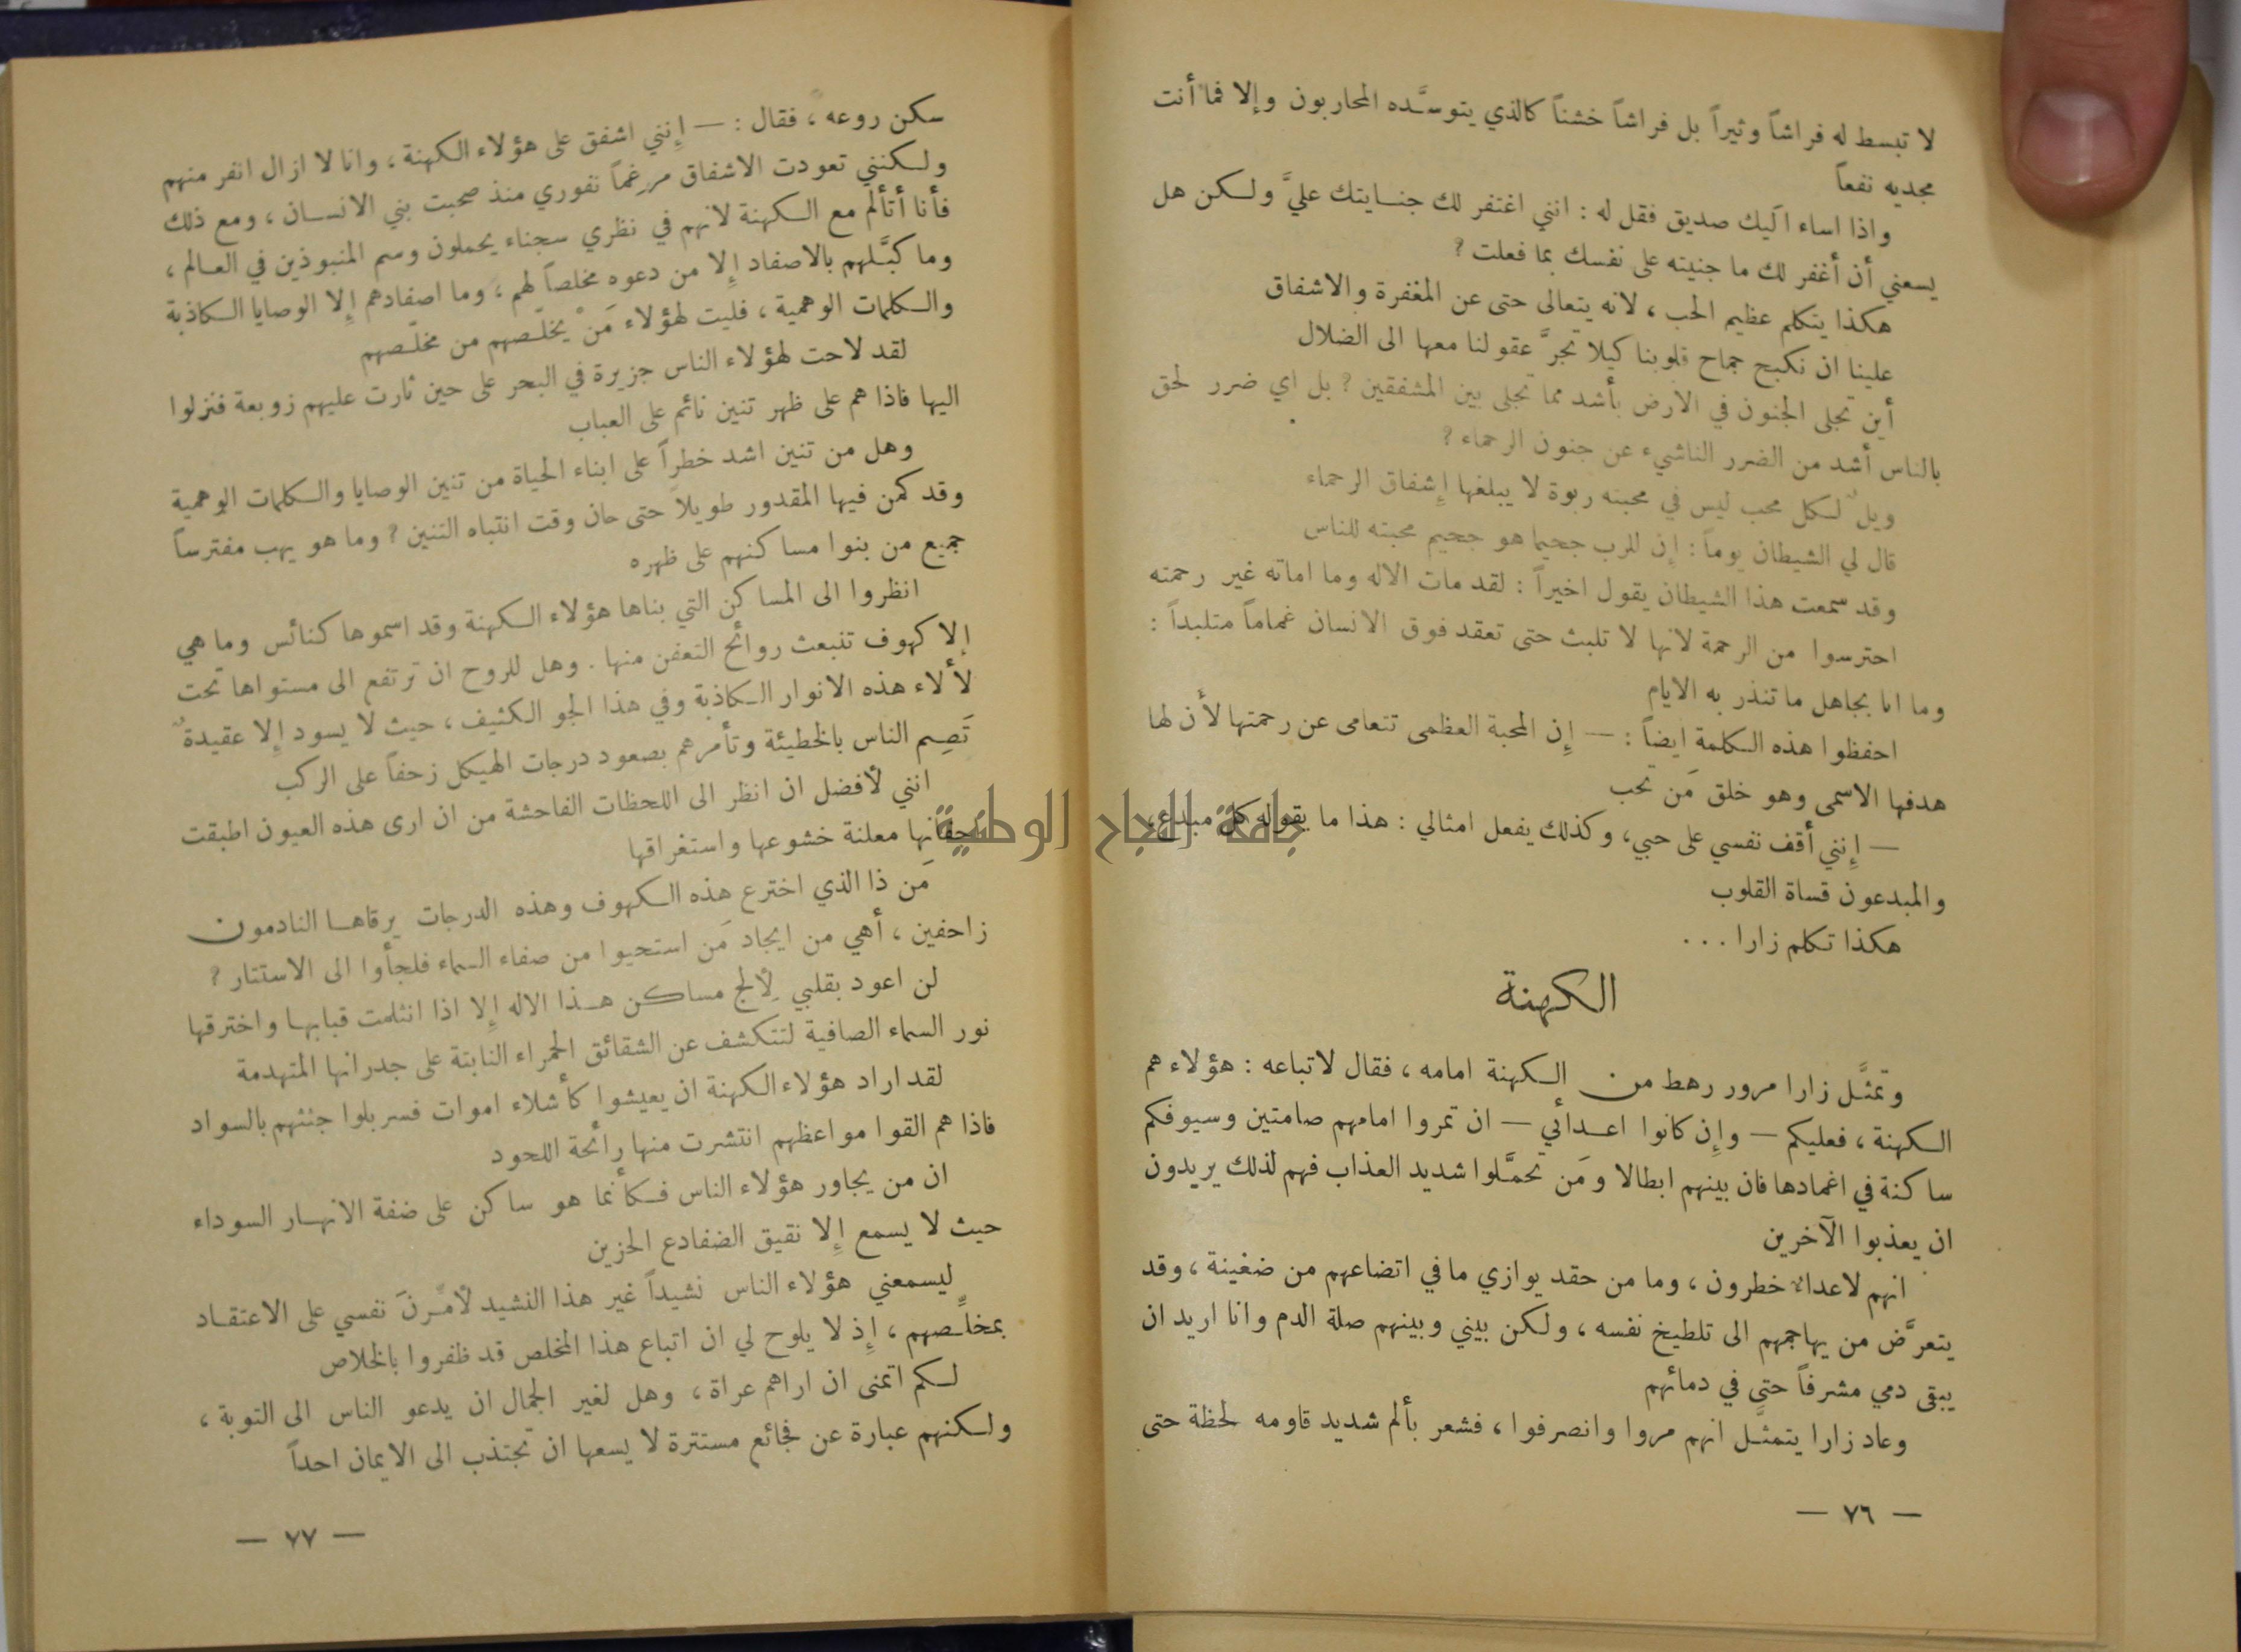 لا تبسط له فراشاً وثيراً بل فراشاً خشناً كالذي يتوسَّده المحاربون وإلا فما أنت
مجديه نفعاً
واذا اساء اليك صديق فقل له : انني اغتفر لك جنايتك عليَّ ولكن هل
يسعني أن أغفر لك ما جنيته على نفسك بما فعلت ؟
هكذا يتكلم عظيم الحب ، لانه يتعالى حتى عن المغفرة والاشفاق
علينا ان نكبح جماح قلوبنا كيلا تجرَّ عقولنا معها الى الضلال
أين تجلى الجنون في الارض بأشد مما تجلى بين المشفقين ؟ بل اي ضرر لحق
بالناس أشد من الضرر الناشيء عن جنون الرحماء ؟
ويلٌ لكل محب ليس في محبته ربوة لا يبلغها إِشفاق الرحماء
قال لي الشيطان يوماً : إِن للرب جحيما هو جحيم محبته للناس
وقد سمعت هذا الشيطان يقول اخيراً : لقد مات الاله وما اماته غير رحمته
احترسوا من الرحمة لانها لا تلبث حتى تعقد فوق الانسان غماماً متلبداً :
وما انا بجاهل ما تنذر به الايام
احفظوا هذه الكلمة ايضاً : — إِن المحبة العظمى تتعامى عن رحمتها لأن لها
هدفها الاسمى وهو خلق مَن تحب
— إِنني أقف نفسي على حبي، وكذلك يفعل امثالي : هذا ما يقوله كل مبدع،
والمبدعون قساة القلوب
هكذا تكلم زارا ...
الكهنة
وتمثَّل زارا مرور رهط من الكهنة امامه ، فقال لاتباعه : هؤلاء هم
الكهنة ، فعليكم — وإِن كانوا اعدائي — ان تمروا امامهم صامتين وسيوفكم
ساكنة في اغمادها فان بينهم ابطالا ومَن تحمَّلوا شديد العذاب فهم لذلك يريدون
ان يعذبوا الآخرين
انهم لاعداء خطرون ، وما من حقد يوازي ما في اتضاعهم من ضغينة ، وقد
يتعرَّض من يهاجمهم الى تلطيخ نفسه ، ولكن بيني وبينهم صلة الدم وانا اريد ان
يبقى دمي مشرفاً حتى في دمائهم
وعاد زارا يتمثَّل انهم مروا وانصرفوا ، فشعر بألم شديد قاومه لحظة حتى
— ٧٦ —
سكن روعه ، فقال : — إِنني اشفق على هؤلاء الكهنة ، وانا لا ازال انفر منهم
ولكنني تعودت الاشفاق مرغماً نفوري منذ صحبت بني الانسان ، ومع ذلك
فأنا أتألم مع الكهنة لانهم في نظري سجناء يحملون وسم المنبوذين في العالم ،
وما كبَّلهم بالاصفاد إِلا من دعوه مخلصاً لهم ، وما اصفادهم إِلا الوصايا الكاذبة
والكلمات الوهمية ، فليت لهؤلاء مَنْ يخلّصهم من مخلّصهم
لقد لاحت لهؤلاء الناس جزيرة في البحر على حين ثارت عليهم زوبعة فنزلوا
اليها فاذا هم على ظهر تنين نائم على العباب
وهل من تنين اشد خطراً على ابناء الحياة من تنين الوصايا والكلمات الوهمية
وقد كمن فيها المقدور طويلاً حتى حان وقت انتباه التنين ؟ وما هو يهب مفترساً
جميع من بنوا مساكنهم على ظهره
انظروا الى المساكن التي بناها هؤلاء الكهنة وقد اسموها كنائس وما هي
إِلا كهوف تنبعث روائح التعفن منها . وهل للروح ان ترتفع الى مستواها تحت
لألاء هذه الانوار الكاذبة وفي هذا الجو الكثيف ، حيث لا يسود إِلا عقيدةٌ
تَصِم الناس بالخطيئة وتأمرهم بصعود درجات الهيكل زحفاً على الركب
انني لأفضل ان انظر الى اللحظات الفاحشة من ان ارى هذه العيون اطبقت
اجفانها معلنة خشوعها واستغراقها
مَن ذا الذي اخترع هذه الكهوف وهذه الدرجات يرقاها النادمون
زاحفين ، أهي من ايجاد مَن استحيوا من صفاء السماء فلجأوا الى الاستتار ؟
لن اعود بقلبي لِألج مساكن هذا الاله إِلا اذا انثلمت قبابها واخترقها
نور السماء الصافية لتتكشف عن الشقائق الحمراء النابتة على جدرانها المتهدمة
لقد اراد هؤلاء الكهنة ان يعيشوا كأشلاء اموات فسربلوا جثثهم بالسواد
فاذا هم القوا مواعظهم انتشرت منها رائحة اللحود
ان من يجاور هؤلاء الناس فكأنما هو ساكن على ضفة الانهار السوداء
حيث لا يسمع إِلا نقيق الضفادع الحزين
ليسمعني هؤلاء الناس نشيداً غير هذا النشيد لأمرّنَ نفسي على الاعتقاد
بمخلِّصهم ، إِذ لا يلوح لي ان اتباع هذا المخلص قد ظفروا بالخلاص
لكم اتمنى ان اراهم عراة ، وهل لغير الجمال ان يدعو الناس الى التوبة ،
ولكنهم عبارة عن فجائع مستترة لا يسعها ان تجتذب الى الايمان احداً
— ٧٧ —
جامعة النجاح الوطنية